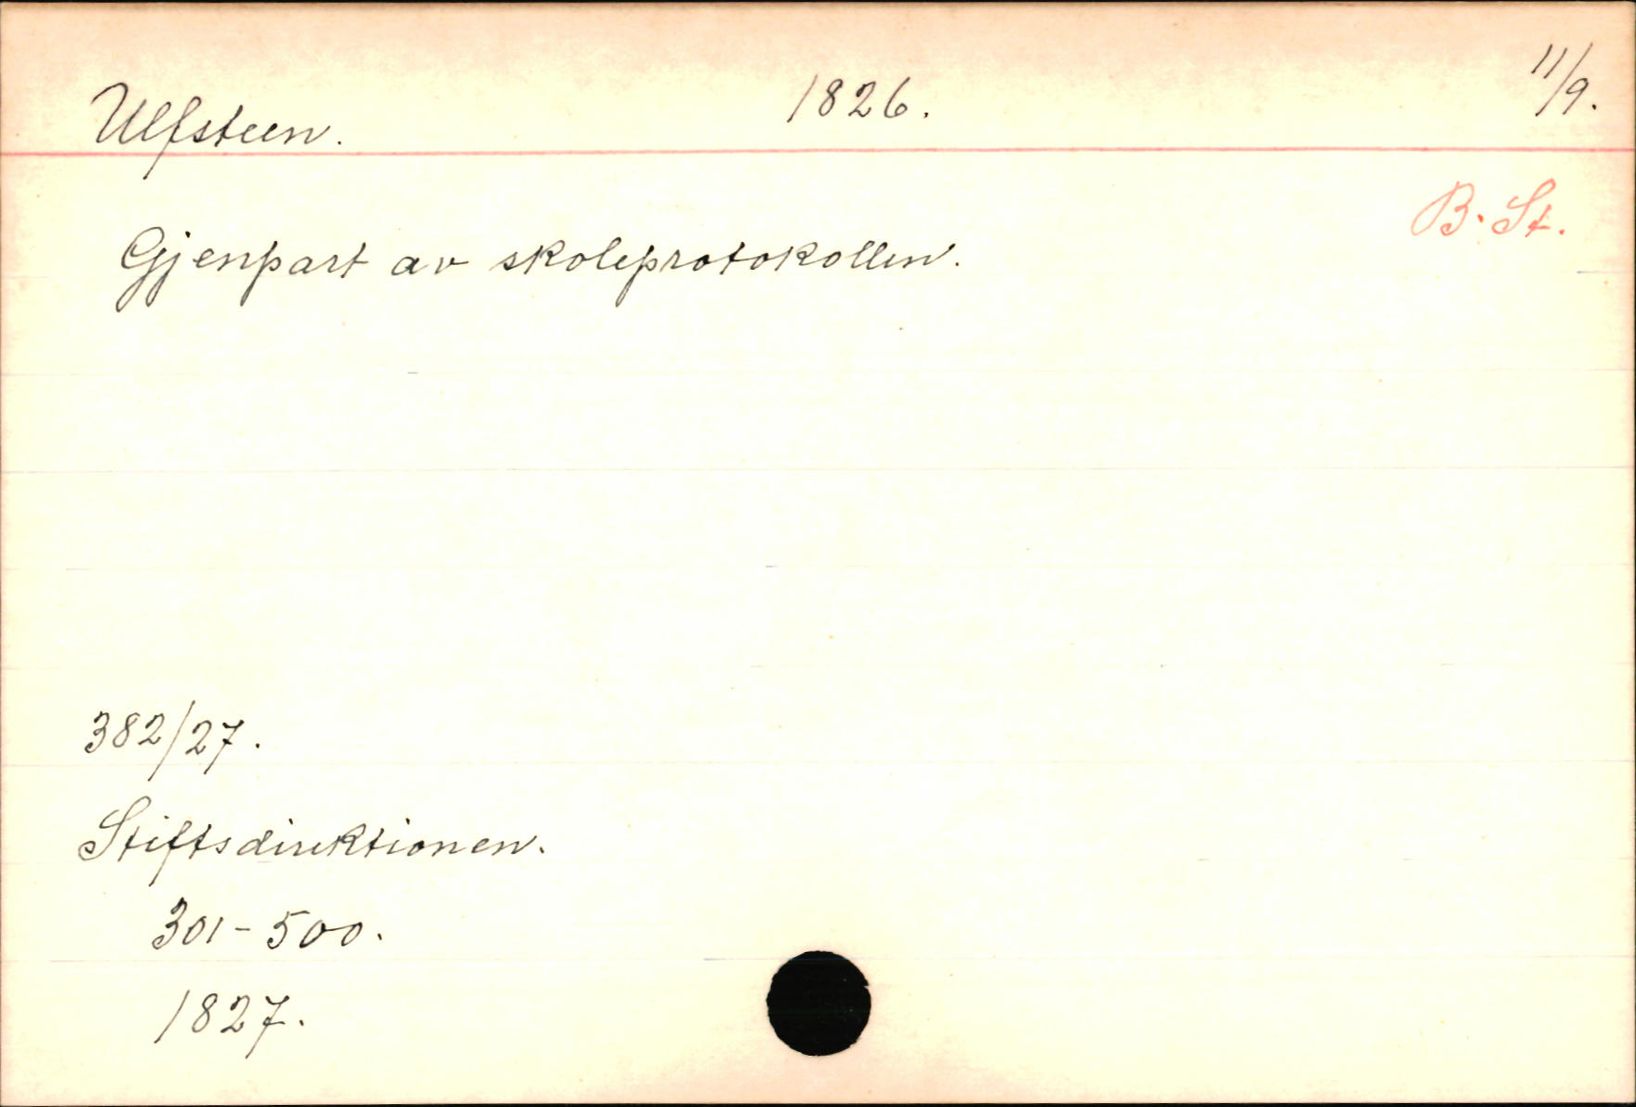 Ulfsteen. 1826. 11/9.
B. St.
Gjenpart av skoleprotokollen.
382/27.
Stiftsdirektionen.
301-500.
1827.